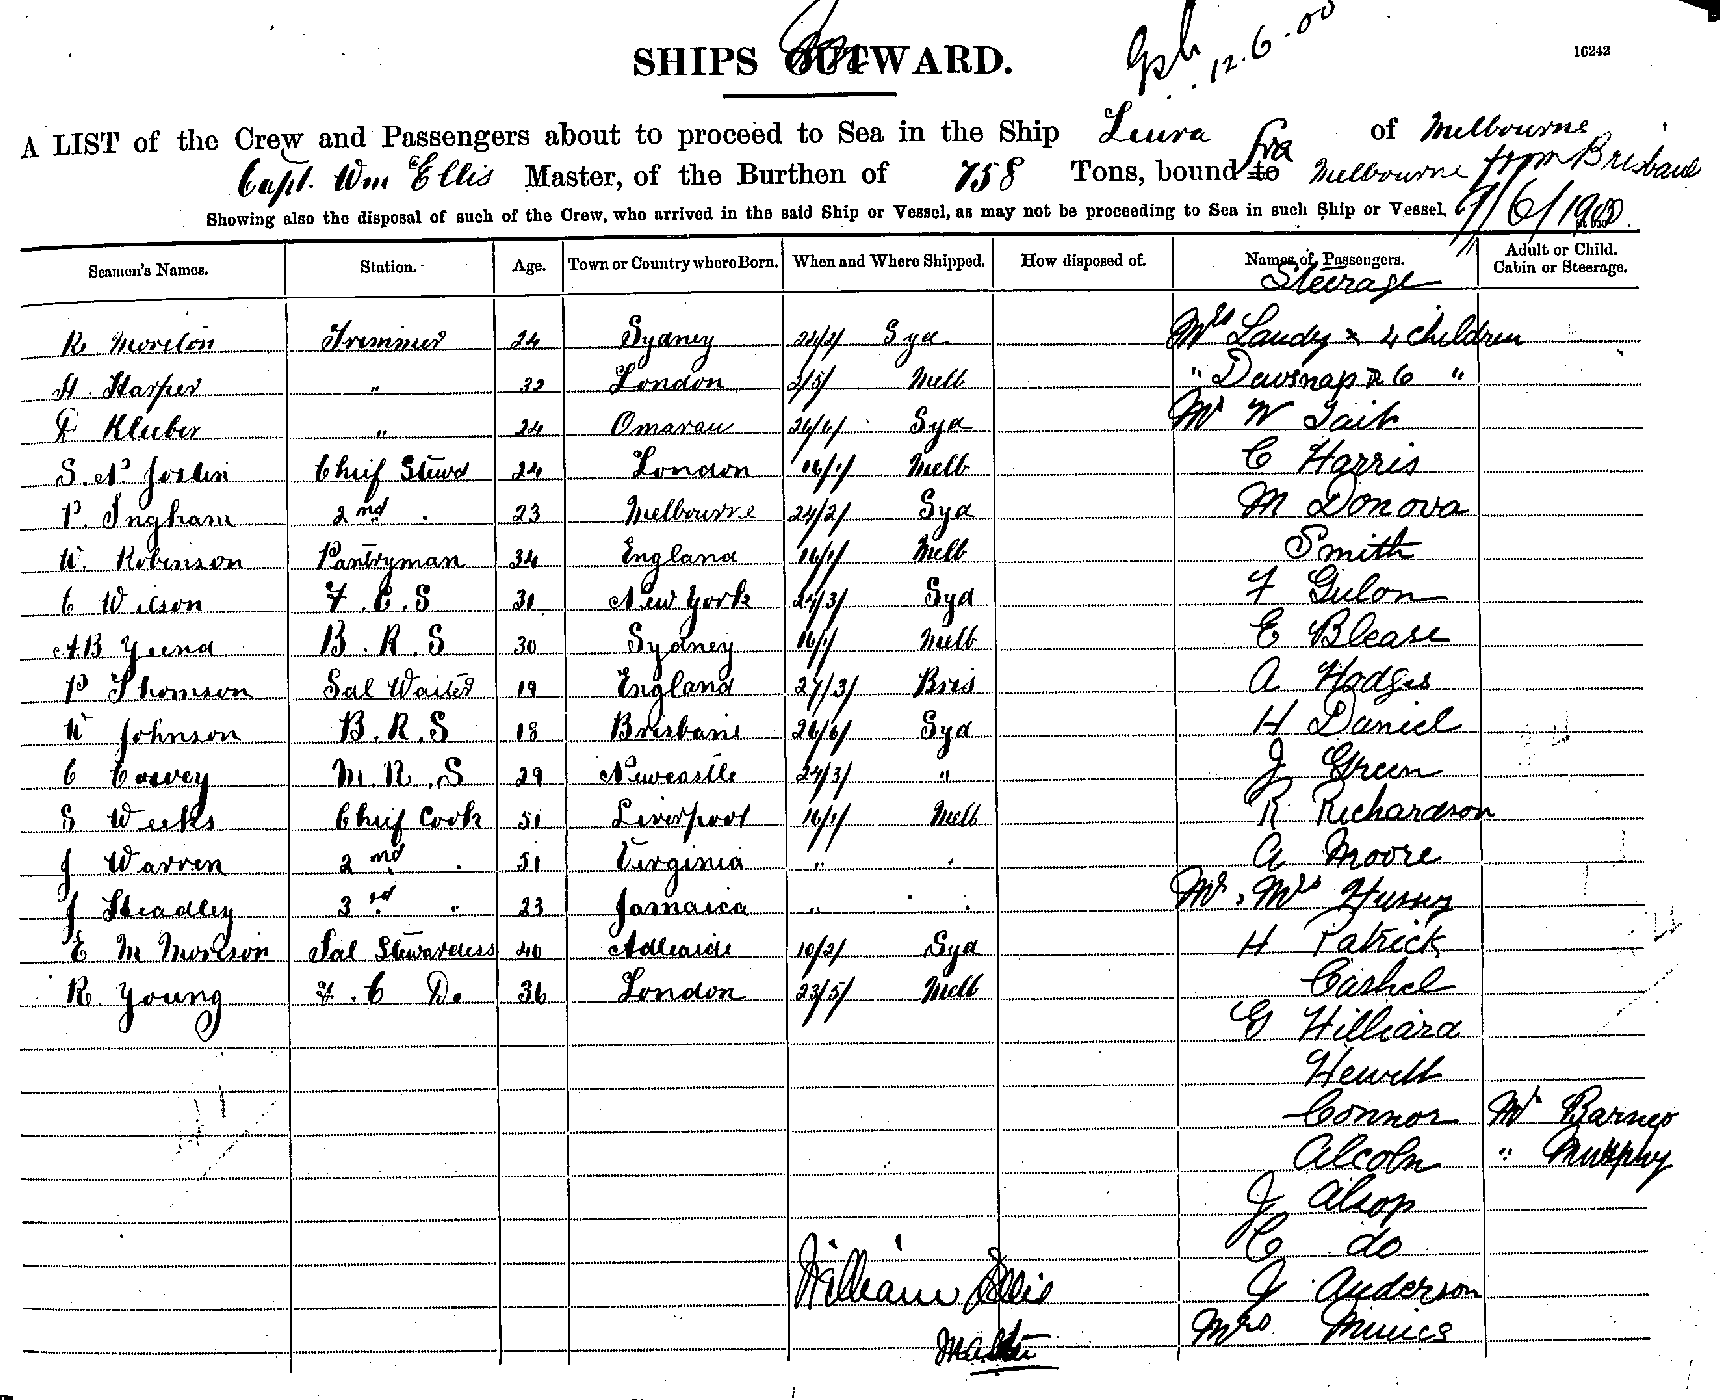 SHIPS OUTWARD.
12.6.00
16242
A LIST of the Crew and Passengers about to proceed to Sea in the Ship Leura of Melbourne
Capt. Wm Ellis Master, of the Burthen of 758 Tons, bound to Melbourne from Brisbane
Showing also the disposal of such of the Crew, who arrived in the said Ship or Vessel, as may not be proceeding to Sea in such Ship or Vessel. /6/1900.
Seamen's Names. Station. Age. Town or Country where Born. When and Where Shipped. How disposed of. Names of Passengers. Adult or Child. Cabin or Steerage.
Steerage
R Morelon Trimmer 24 Sydney Syd Mrs Landy & 4 children
H. Harper " 32 London 2/5/ Melb " Davsnap & 6 "
F Kluber " 24 Omarau Syd Mr W Tait
S. Joslin Chief Stewd 24 London 16/1/ Melb C Harris
P. Ingham 2nd 23 Melbourne 24/2/ Syd M Donova
W. Robinson Pantryman 34 England 16/1/ Melb Smith
C Wilson F.C.S 31 New York 24/3/ Syd F Gulon
AB Yeend B.R.S 30 Sydney 16/1/ Melb E Blease
P Thomson Sal Waiter 19 England 27/3/ Bris A Hodges
W Johnson B.R.S 18 Brisbane Syd H Daniel
C Cowey M.R.S 29 Newcastle 24/3/ " J Green
S Weeks Chief Cook 51 Liverpool 16/1/ Melb R Richardson
J Warren 2nd 51 Virginia " A Moore
J Headley 3rd 23 Jamaica " Mr & Mrs Hussey
E M Morison Sal Stewardess 40 Adleaide 10/2/ Syd H Patrick
R. Young F.C Do 36 London 23/5/ Melb Cashel
G Hilliard
Hewett
Connor Mr Barnes
Alcoln " Murphy
J Alsop
C do
J Anderson
Mrs
William Ellis
Master